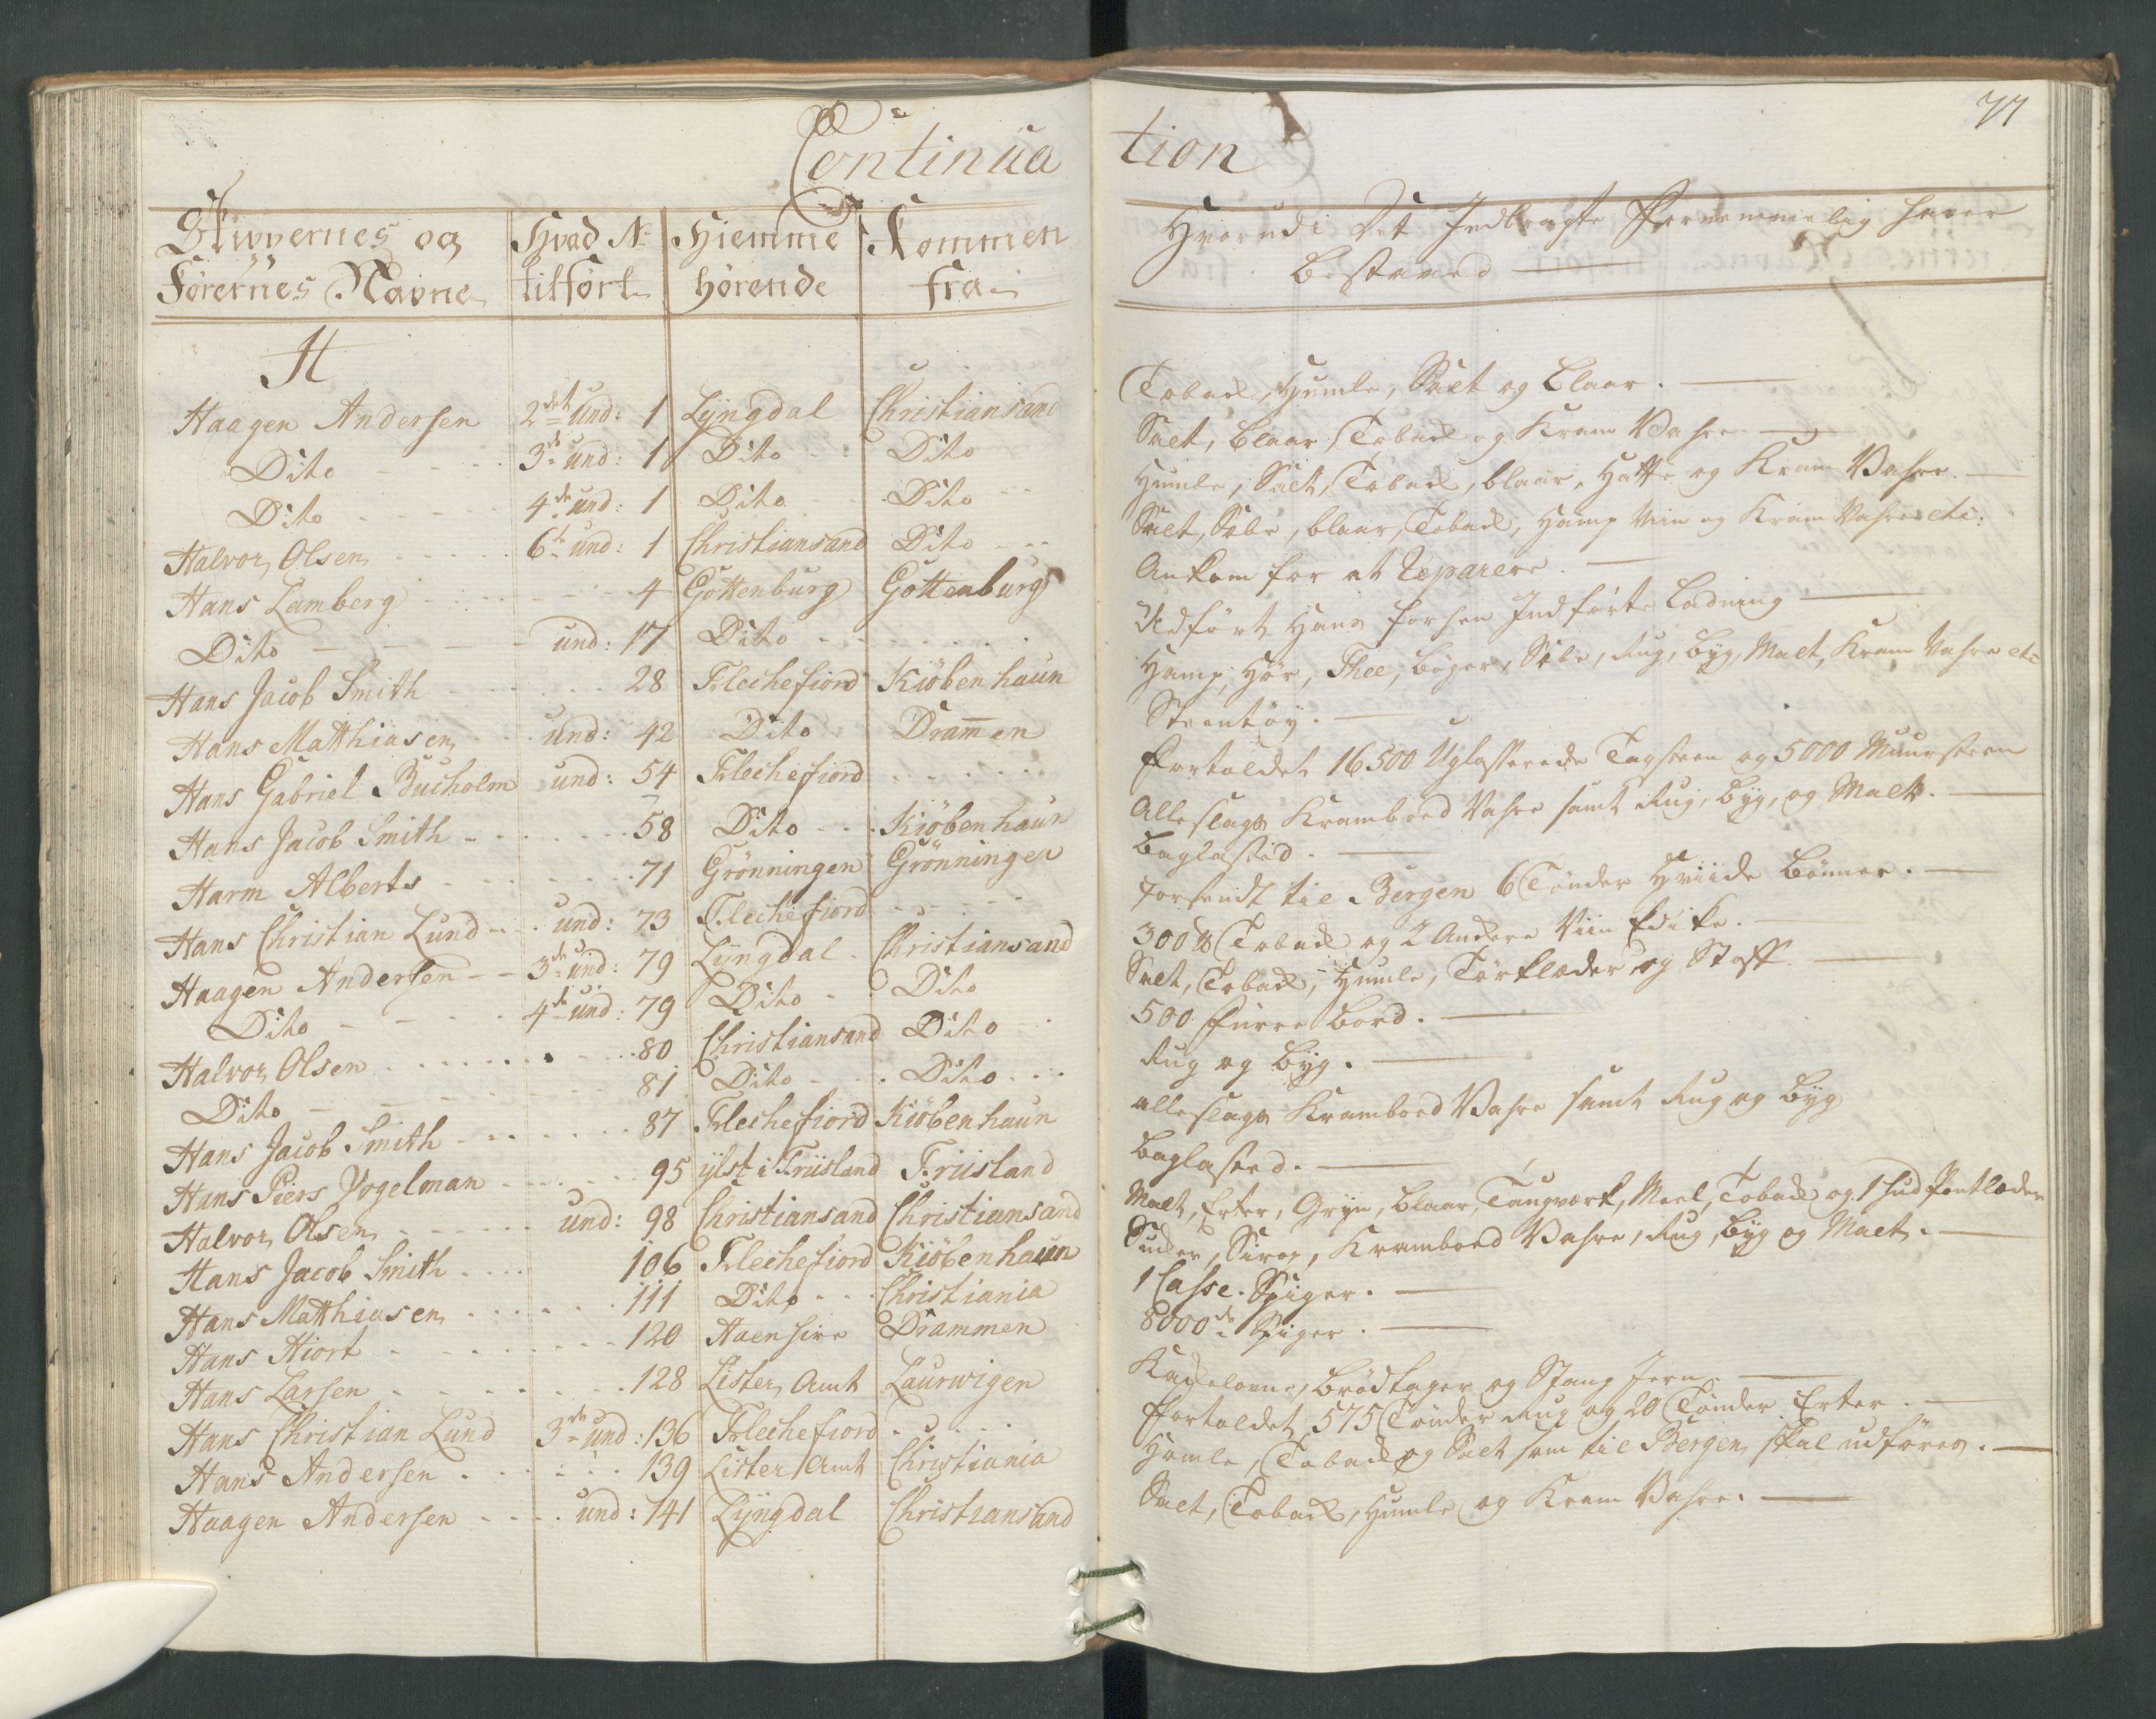 Continua
Skippernes og
Førernes Navne
Hvad No
tilført
Hiemme
hørende
Kommen
fra
H
Haagen Andersen 2det und: 1 Lyngdal Christiansand
Dito 3de und: 1 Dito Dito
Dito 4de und: 1 Dito Dito
Halvor Olsen 6te und: 1 Christiansand Dito
Hans Lamberg 4 Gottenburg Gottenburg
Dito und: 17 Dito
Hans Jacob Smith 28 Flechefiord Kiöbenhaun
Hans Matthiasen und: 42 Dito Dramen
Hans Gabriel Bucholm und: 54 Flechefiord
Hans Jacob Smith 58 Dito Kiöbenhaun
Harm Alberts 71 Grönningen Grönningen
Hans Christian Lund und: 73 Flechefiord
Haagen Andersen 3de und: 79 Lyngdal Christiansand
Dito 4de und: 79 Dito Dito
Halvor Olsen 80 Christiansand Dito
Dito 81 Dito Dito
Hans Jacob Smith 87 Flechefiord Kiöbenhaun
Hans Piers Vogelman 95 ylst i Friisland Friisland
Halvor Olsen und: 98 Christiansand Christiansand
Hans Jacob Smith 106 Flechefiord Kiöbenhaun
Hans Matthiasen 111 Dito Christiania
Hans Hiort 120 Aaensire Drammen
Hans Larsen 128 Lister Amt Laurwigen
Hans Christian Lund 3de und: 136 Flechefiord
Hans Andersen 139 Lister Amt Christiania
Haagen Andersen und: 141 Lyngdal Christiansand
77
tion
Hvorudi Det Indbragte Fornemmelig haver
bestaaed
Toback, Humle, Salt og Blaar.
Salt, Blaar, Toback og Kram Vahre
Humle, Salt, Toback, blaar, Hatte og Kram Vahre
Salt, Sebe, blaar, Toback, Hamp Viin og Kram Vahre etc:
Ankom for at Reparere.
Udført Hans forhen Indførte Ladning
Hamp, Hør, Thee, bøger, Sebe, Rug, Byg, Malt, Kram Vahre etc
Steentøy.
Fortoldet 16500 Uglasserede Tagsteen og 5000 Muursteen
Alle slags Kramboed Vahre samt Rug, Byg, og Malt.
Baglasted.
forsendt til Bergen 6 Tønder Hviide Bønner.
300 ℔ Toback og 2 Ankere Viin Edike.
Salt, Toback, Humle, Tørklæder og Stoff
500 Furre Bord.
Rug og Byg.
alle slags Kramboed Vahre samt Rug og Byg
Baglasted.
Malt, Erter, Gryn, Blaar, Taugværk, Meel, Toback og 1 hud Pentlæder
Suker, Sirop, Kramboed Vahre, Rug, Byg og Malt.
1 Casse Spiger.
8000de Spiger.
Kackelovne, Brødtager og Stang Jern
Fortoldet 575 Tønder Rug og 20 Tønder Erter.
Homle, Toback og Salt som til Bergen skal udføres.
Salt, Toback, Humle og Kram Vahre.